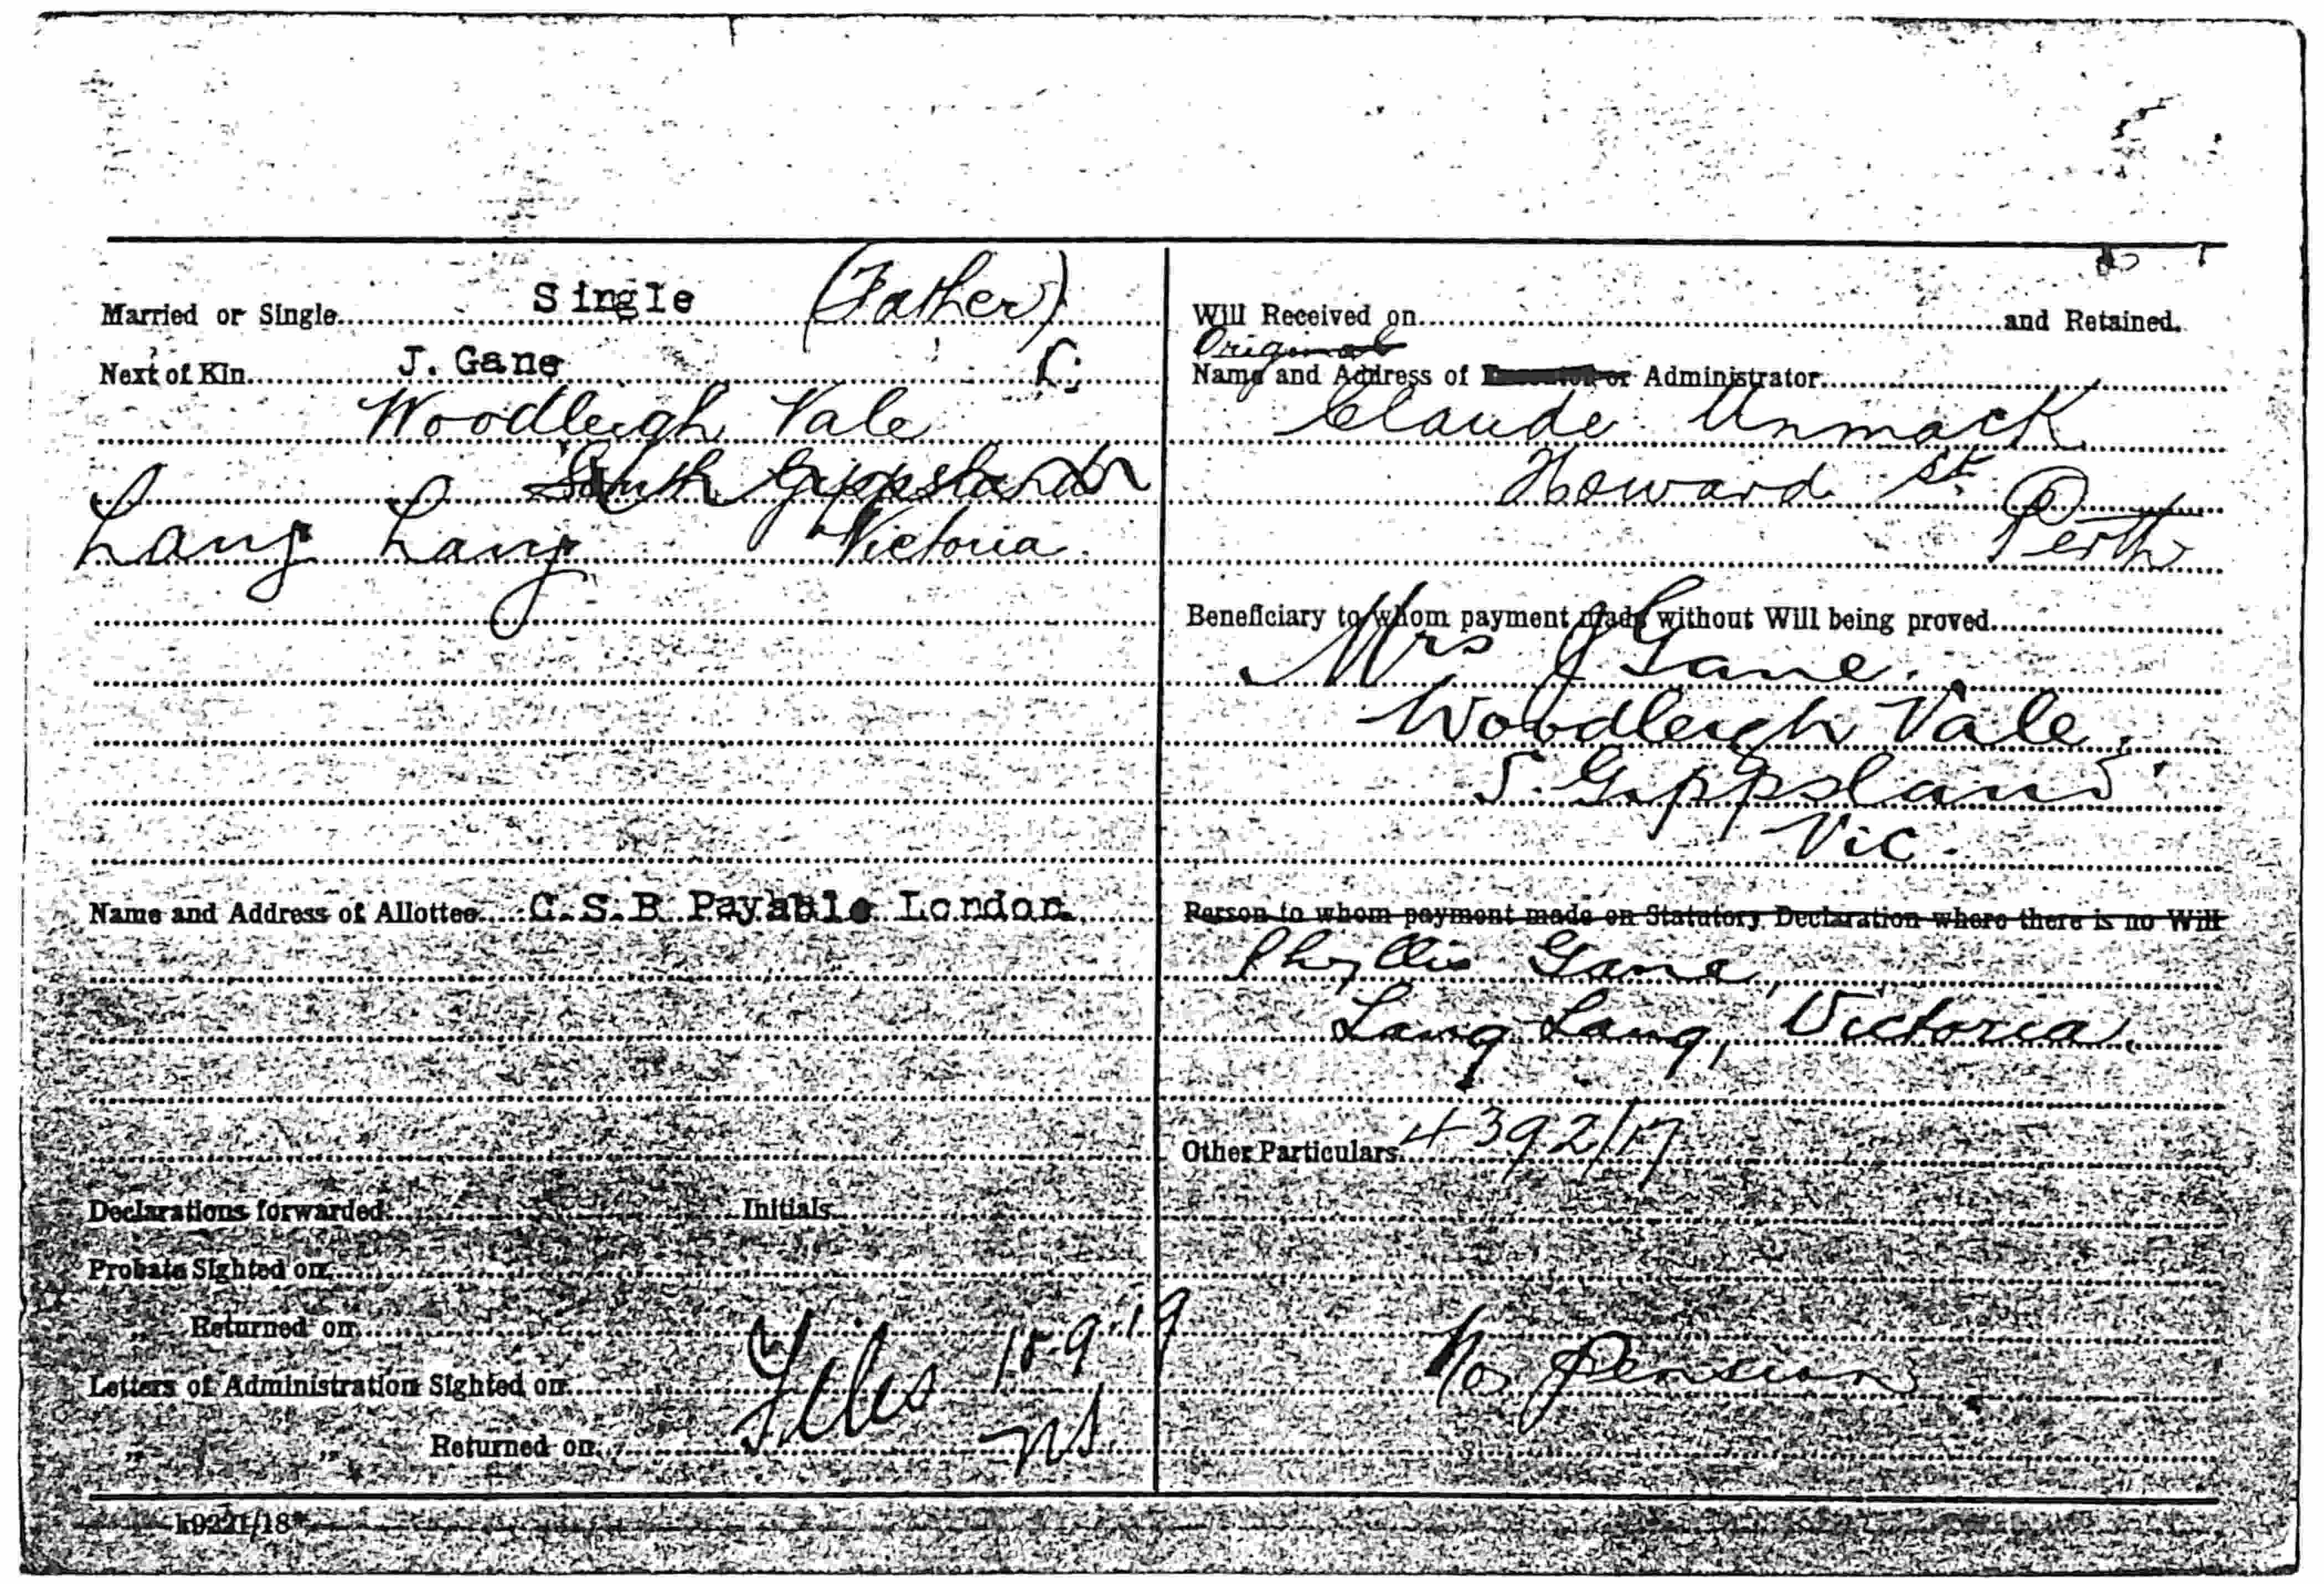 Married or Single Single (Father)
Next of Kin J. Gane
Woodleigh Vale
South Gippsland
Lang Lang Victoria
Name and Address of Allottee C.S.B Payable London
Declarations forwarded Initials
Probate Sighted on
„ Returned on
Letters of Administration Sighted on
„ „ Returned on
15-9-19
k9221/18
Will Received on and Retained.
Original
Name and Address of Executor or Administrator
Claude Unmack
Howard St
Perth
Beneficiary to whom payment made without Will being proved
Mrs J Gane.
Woodleigh Vale,
S. Gippsland
Vic.
Person to whom payment made on Statutory Declaration where there is no Will
Phyllis Gane,
Lang Lang, Victoria.
Other Particulars 4392/17
No Pension